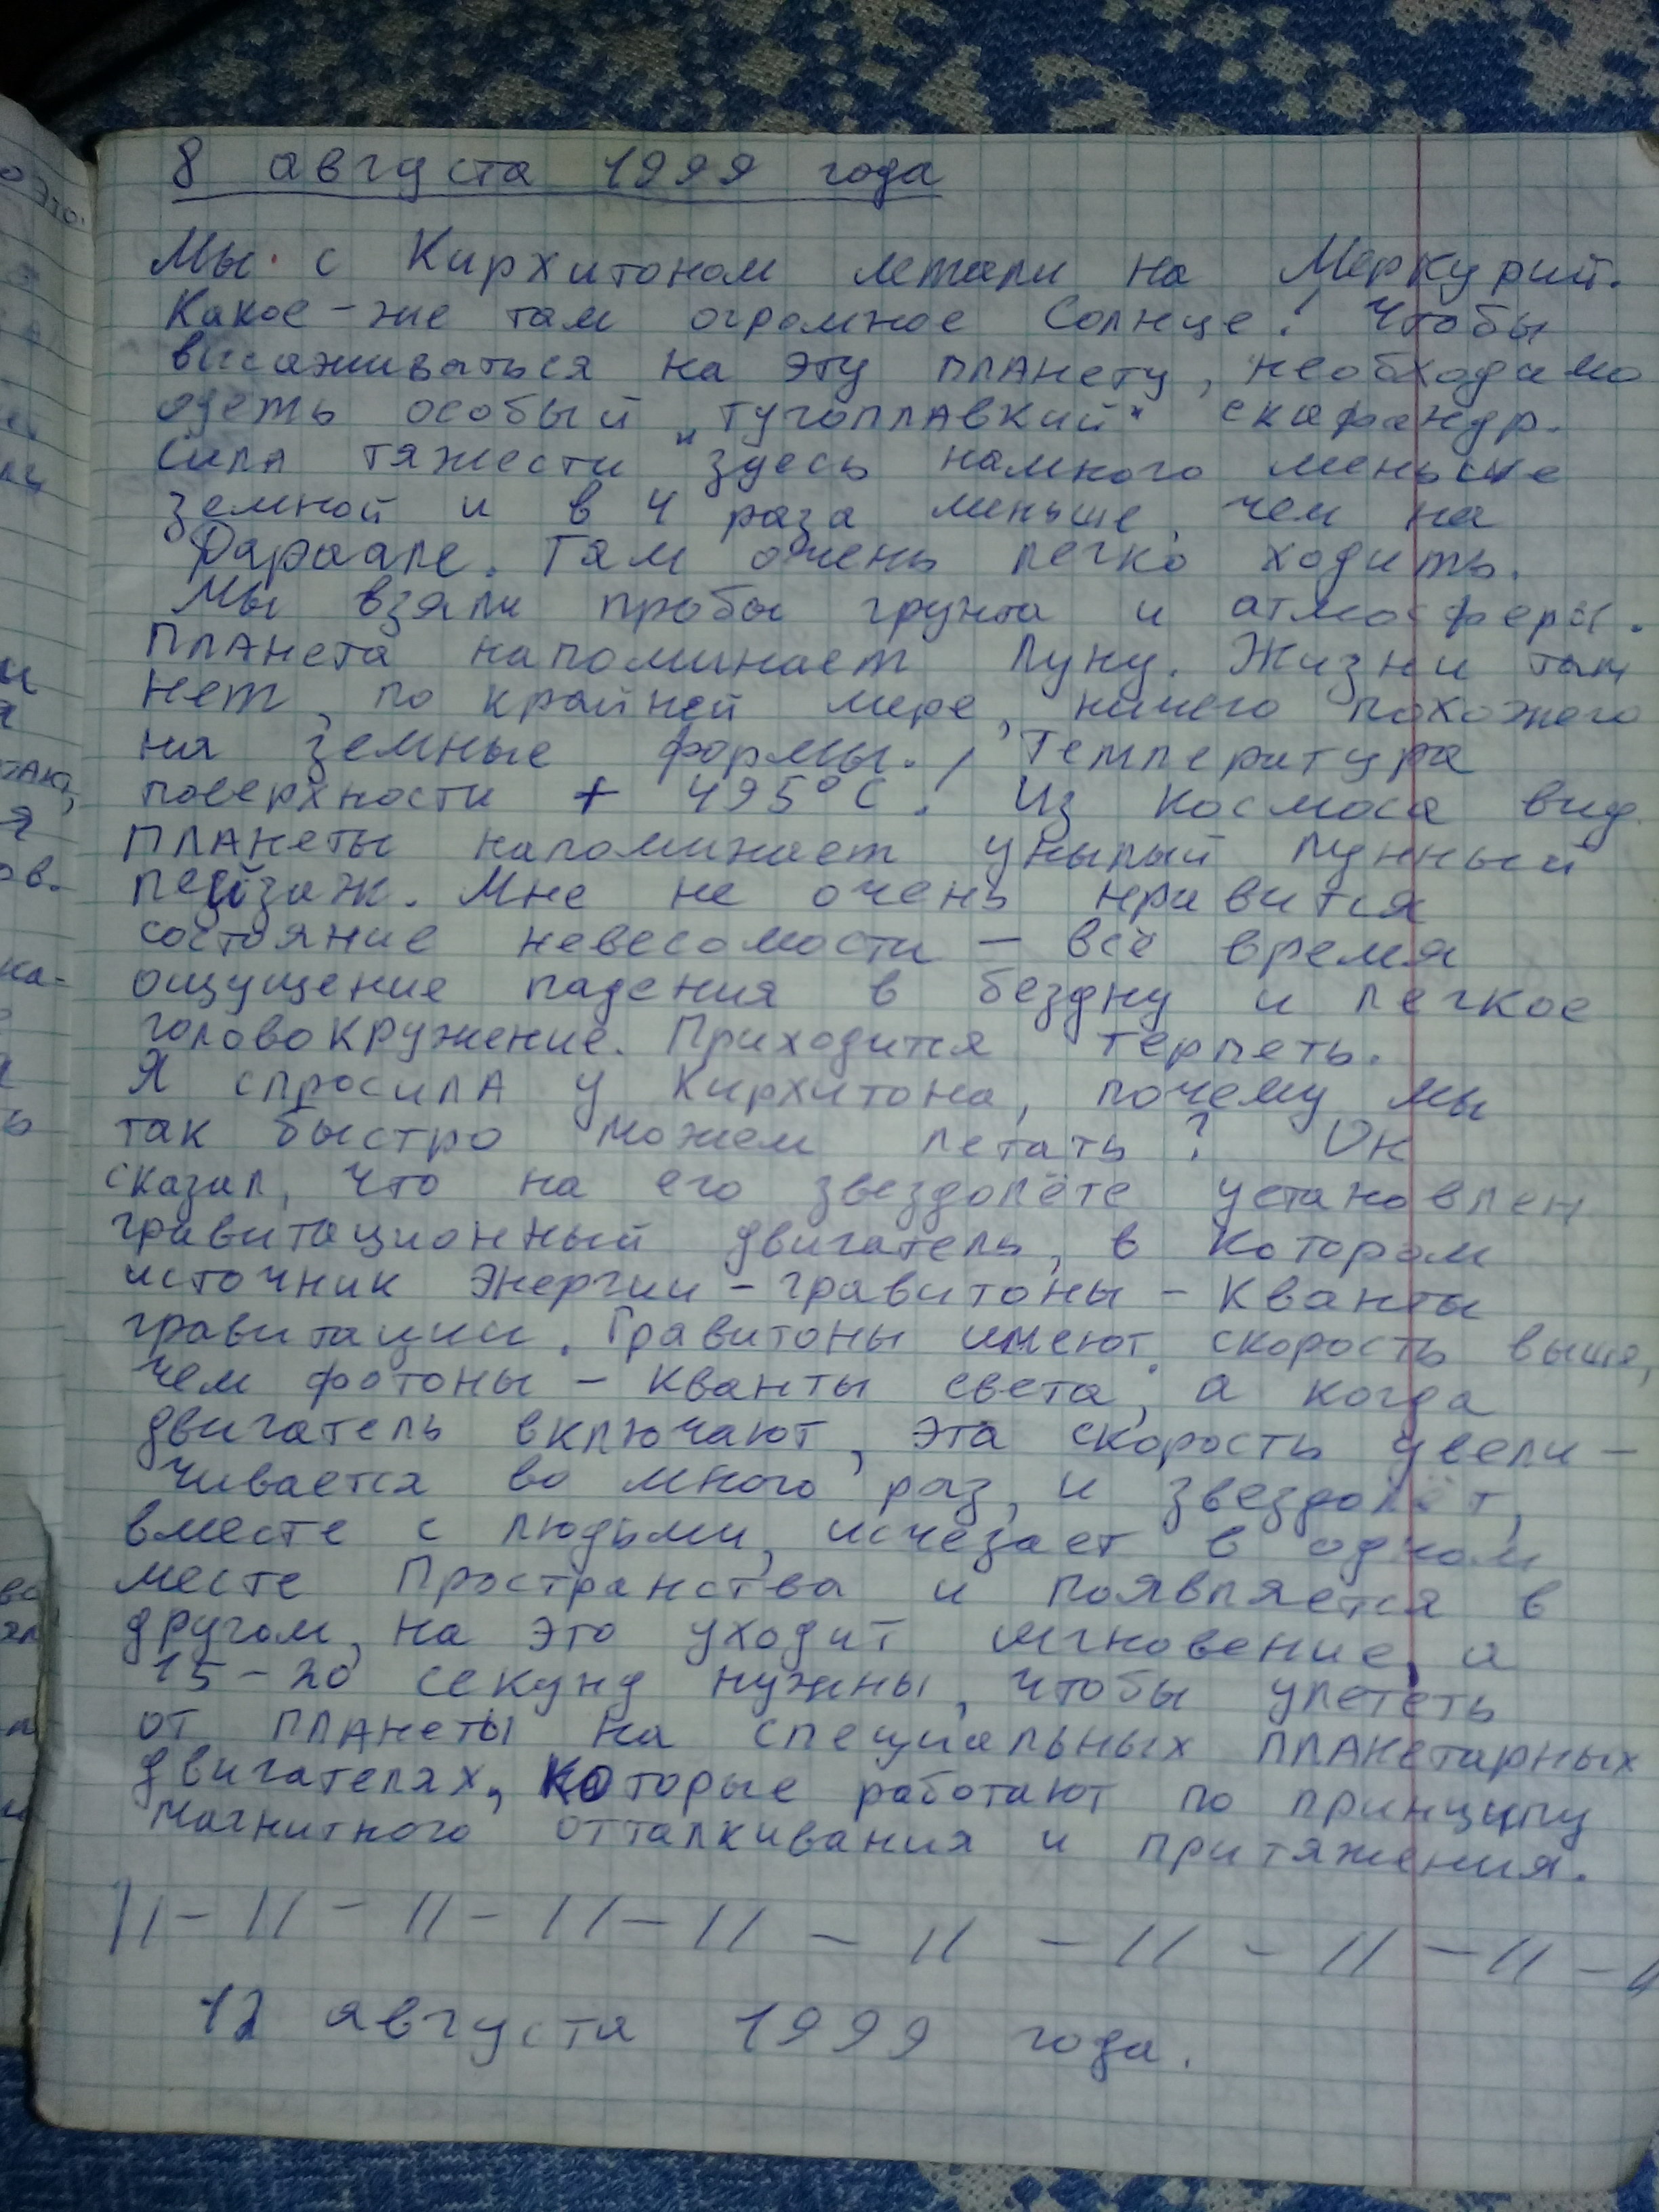 8 августа 1999 года
Мы с Кирхитоном летали на Меркурий.
Какое-же там огромное Солнце! Чтобы
высаживаться на эту планету, необходимо
одеть особый „тугоплавкий" скафандр.
Сила тяжести здесь намного меньше
земной и в 4 раза меньше, чем на
Дараале. Там очень легко ходить.
Мы взяли пробы грунта и атмосферы.
Планета напоминает Луну. Жизни там
нет, по крайней мере, ничего похожего
на земные формы. Температура
поверхности + 495°С! Из космоса вид
планеты напоминает унылый лунный
пейзаж. Мне не очень нравится
состояние невесомости – всё время
ощущение падения в бездну и легкое
головокружение. Приходится терпеть.
Я спросила у Кирхитона, почему мы
так быстро можем летать? Он
сказал, что на его звездолёте установлен
гравитационный двигатель, в котором
источник энергии – гравитоны – кванты
гравитации. Гравитоны имеют скорость выше,
чем фотоны – кванты света, а когда
двигатель включают, эта скорость увели-
чивается во много раз, и звездолёт,
вместе с людьми, исчезает в одном
месте Пространства и появляется в
другом, на это уходит мгновение, а
15-20 секунд нужны, чтобы улететь
от планеты на специальных планетарных
двигателях, которые работают по принципу
магнитного отталкивания и притяжения.
12 августа 1999 года.